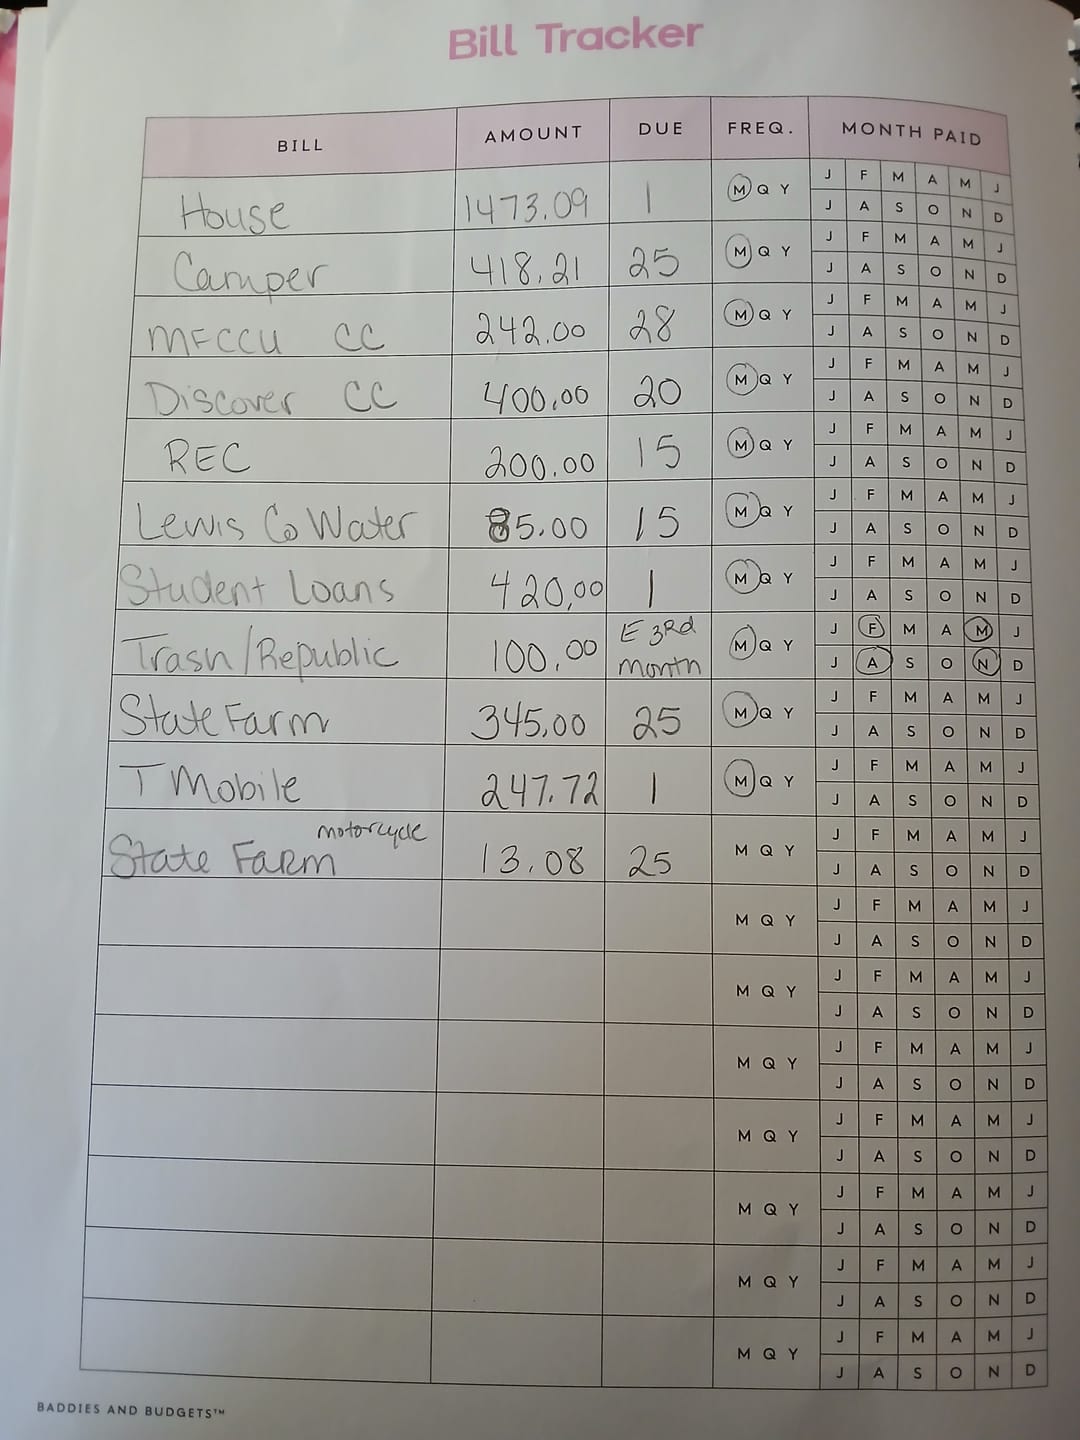 Bill Tracker
BILL AMOUNT DUE FREQ. MONTH PAID
House 1473.09 1 M Q Y J F M A M J
J A S O N D
Camper 418.21 25 M Q Y J F M A M J
J A S O N D
MFCCU CC 242.00 28 M Q Y J F M A M J
J A S O N D
Discover CC 400.00 20 M Q Y J F M A M J
J A S O N D
REC 200.00 15 M Q Y J F M A M J
J A S O N D
Lewis Co Water 85.00 15 M Q Y J F M A M J
J A S O N D
Student Loans 420.00 1 M Q Y J F M A M J
J A S O N D
Trash/Republic 100.00 E 3rd M Q Y J F M A M J
month J A S O N D
State Farm 345.00 25 M Q Y J F M A M J
J A S O N D
T Mobile 247.72 1 M Q Y J F M A M J
J A S O N D
motorcycle J F M A M J
State Farm 13.08 25 M Q Y J A S O N D
M Q Y J F M A M J
J A S O N D
M Q Y J F M A M J
J A S O N D
M Q Y J F M A M J
J A S O N D
M Q Y J F M A M J
J A S O N D
M Q Y J F M A M J
J A S O N D
M Q Y J F M A M J
J A S O N D
M Q Y J F M A M J
J A S O N D
BADDIES AND BUDGETS™